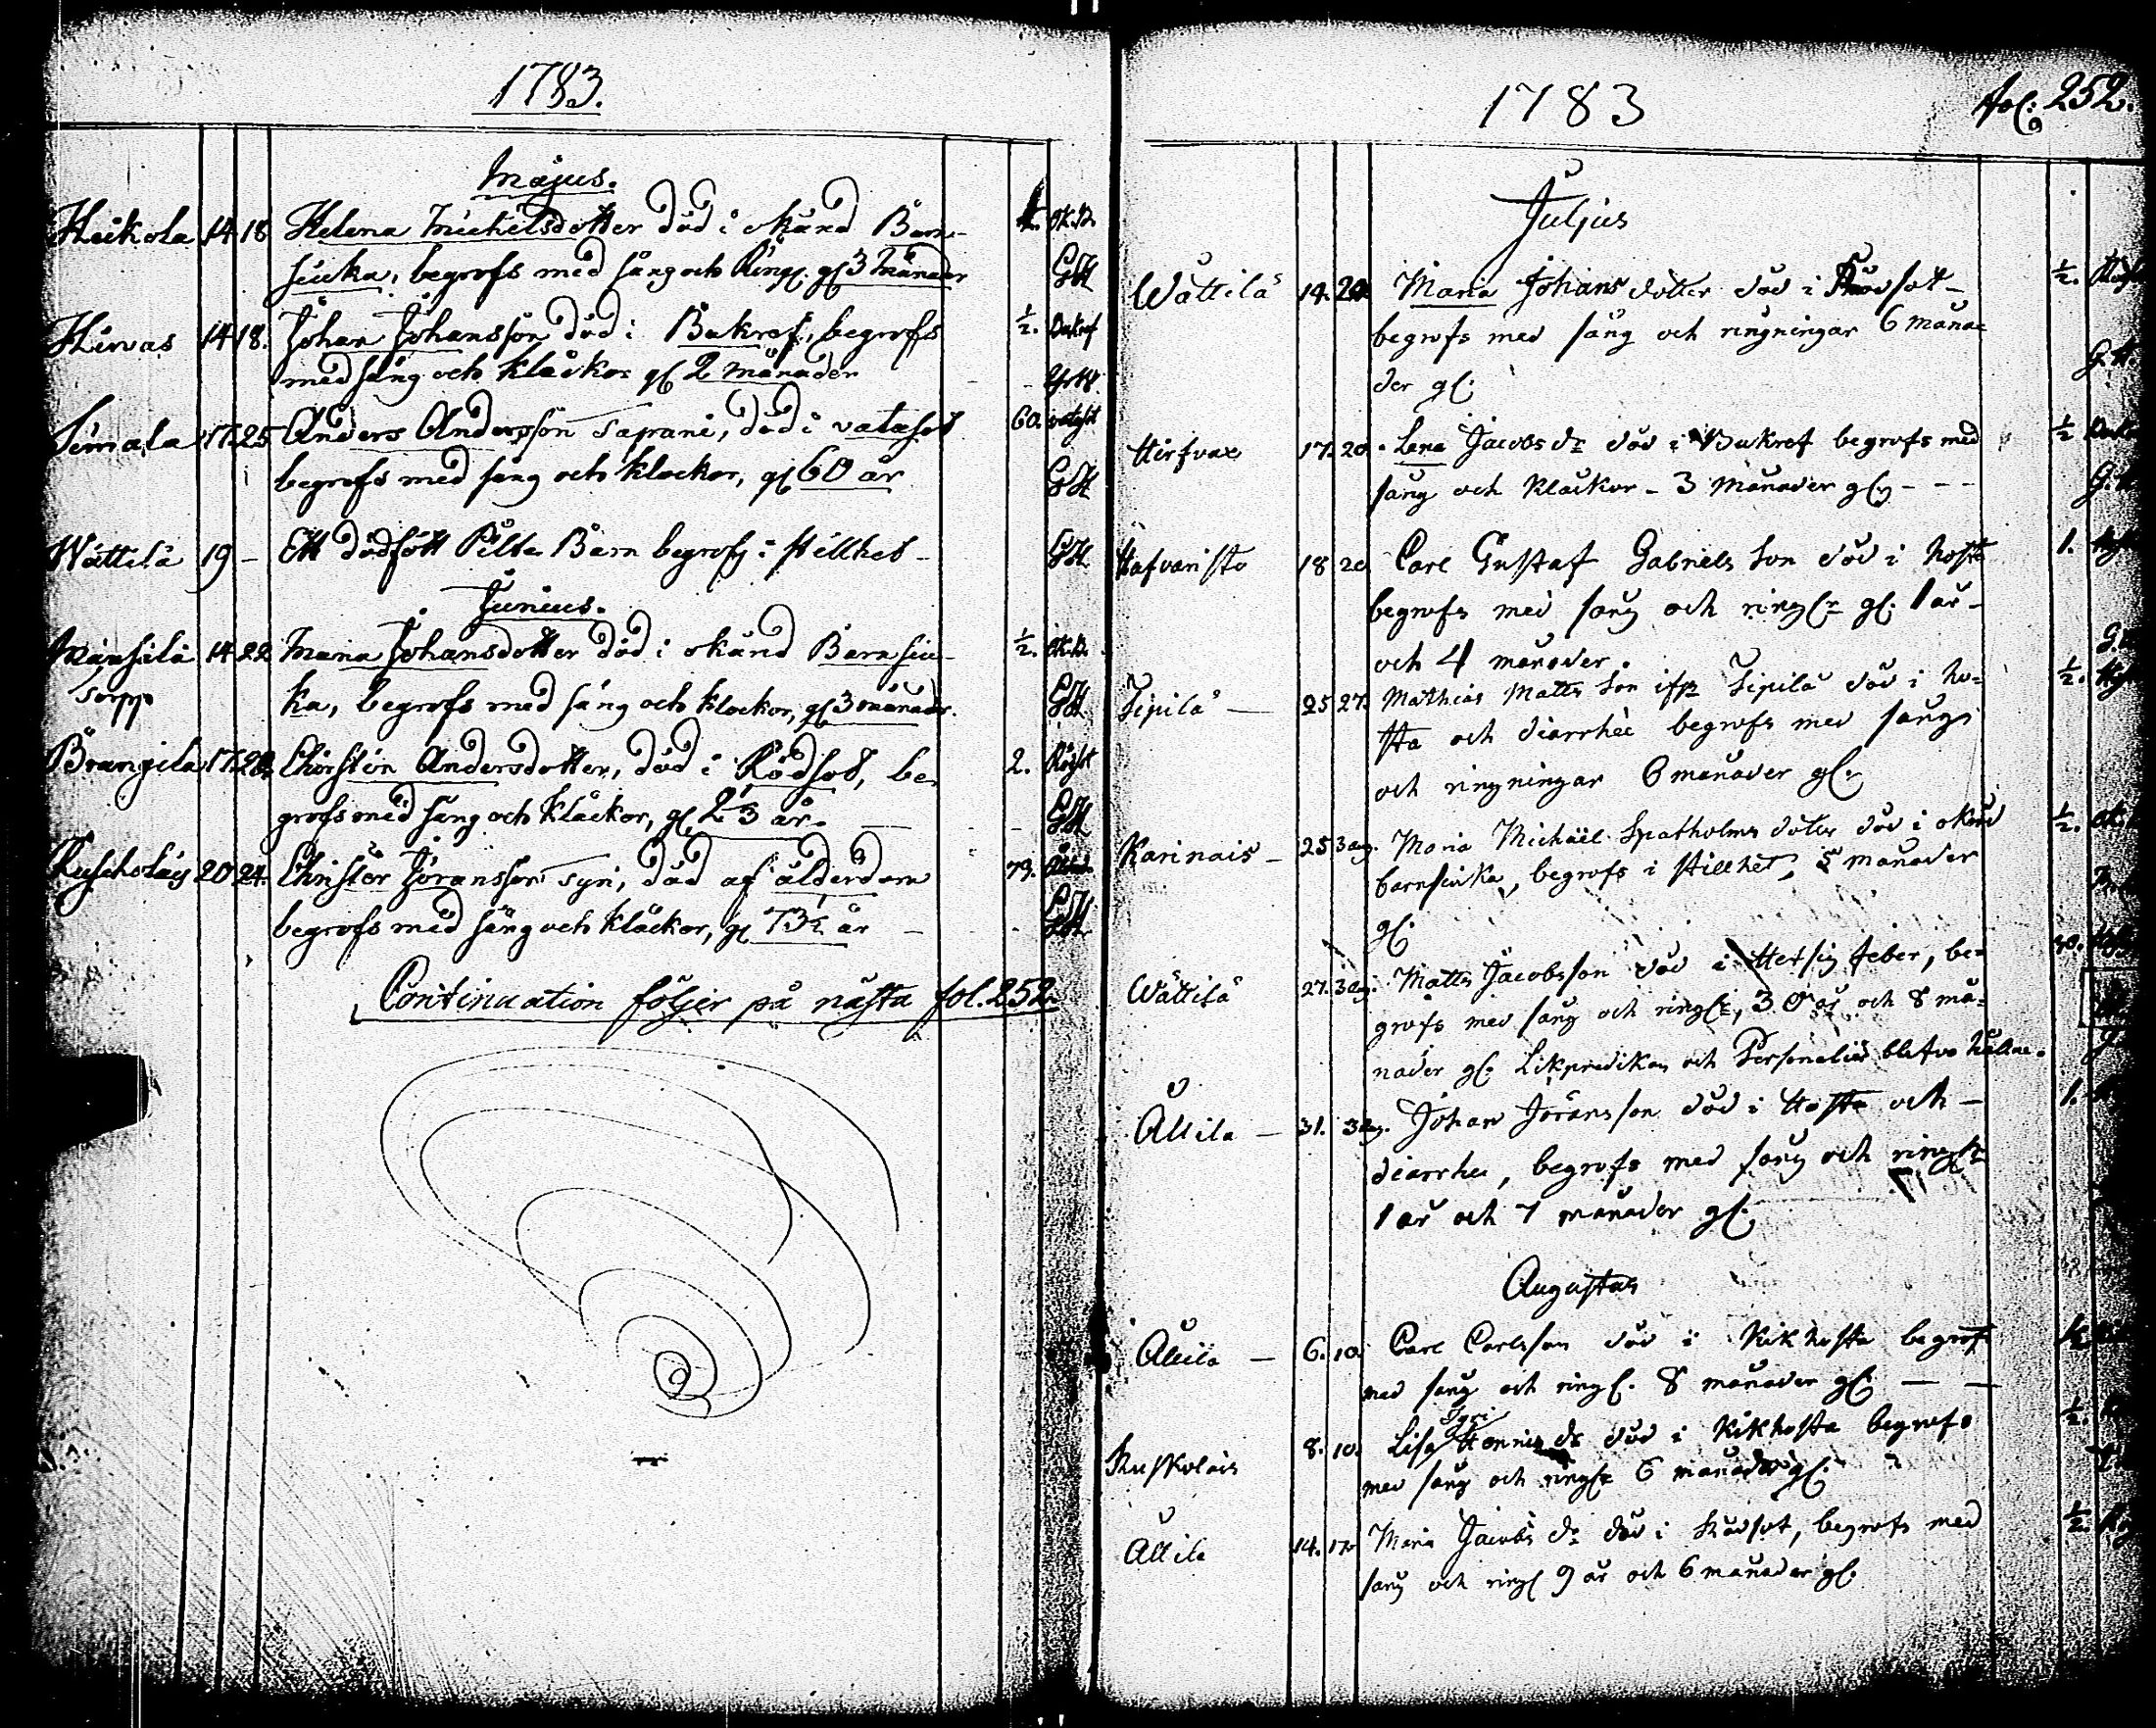 1783.
Majus.
Heikola 14 18 Helena Michelsdotter död i okänd Barn-
siuka, begrofs med sång och Ringn. gl 3 Månader GH
Hirvas 14 18. Johan Johansson död i Bukref, begrofs ½. Bukref
med sång och klåckor gl 2 månader
17. 25 Anders Andersson Saprani, död i vatusot 60.
begrofs med sång och klockor, gl 60 år GH
Wättilä 19 - Ett dödfött Pilte Barn begrofs i stillhet - GH
Junius.
14 22 Maria Johansdotter död i okänd Barnsiu- ½.
Sorpp ka, begrofs med sång och klockor, gl 3 månader. GH
17. 20. Christin Andersdotter, död i Rödsot, be- 2. Rödsot
grofs med sång och klåckor, gl 2 ⅓ år. GH
20 24. Christer Jöransson Syri, död af ålderdom 73.
begrofs med sång och klåckor, gl 73½ år GH
Continuation följer på nästa fol. 252.
1783
fol: 252.
Julius
Wättilä 14. 20. Maria Johans dotter död i Rödsot - ½.
begrofs med sång och ringningar 6 måna=
der gl. G.H.
Hirfvas 17. 20. Lena Jacobs dr död i Bukref begrofs med ½
sång och klåckor - 3 månader gl. - - -
18 20 Carl Gustaf Gabriels Son död i hosta 1.
begrofs med sång och ringr gl. 1 år -
och 4 månader.
Sipilä — 25 27. Mathias Matts Son ifr Sipilä död i ho= ½.
sta och diarrhée begrofs med sång
och ringningar 6 månader gl.
Karinais - 25 3 aug. Maria Michäel Spatholms doter död i okänd ½.
barnsiuka, begrofs i stillhet, 5 månader
gl.
Wättilä 27. 3 aug. Matts Jacobsson död i Hetsig feber, be= 30.
grofs med sång och ringr, 30 år och 8 må=
nader gl. Likpredikan och Personalier blefvo hållne.
Allila — 31. 3 aug. Johan Jöransson död i Hosta och - 1.
diarrhée, begrofs med sång och ringr
1 år och 7 månader gl.
Augustus
Allila — 6. 10. Carl Carlsson död i Kikhosta begrofs ½
med sång och ringl. 8 månader gl. — —
8. 10. Lisa Syri Henrics dr död i Kikhosta begrofs ½.
med sång och ringr 6 månader gl.
Allila 14. 17. Maria Jacobs dr död i Rödsot, begrofs med ½.
sång och ringl 9 år och 6 månader gl.